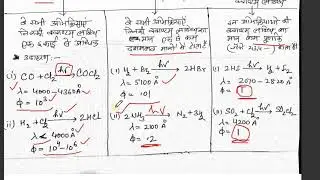 वे सभी अभिक्रियाएं
जिनकी क्वाण्टम लब्धि
एक इकाई से अधिक
उदाहरण:
(i) CO + Cl₂ hν→ COCl₂
λ = 4000-4360Å
Φ = 10³
(ii) H₂ + Cl₂ hν→ 2HCl
λ < 4000Å
Φ = 10⁴-10⁶
वे सभी अभिक्रियाएं
जिनकी क्वाण्टम लब्धि
का मान एक से कम
होता है
(i) H₂ + Br₂ hν→ 2HBr
λ = 5100Å
Φ = .01
(ii) 2NH₃ hν→ N₂ + 3H₂
λ = 2100Å
Φ = .2
इन अभिक्रियाओं की
क्वाण्टम लब्धि का
मान कम
(i) hν→ H₂ + I₂
λ = 2070 - 2820Å
Φ = 1
(ii) SO₂ + Cl₂ hν→ SO₂Cl₂
λ = 4200Å
Φ = 1